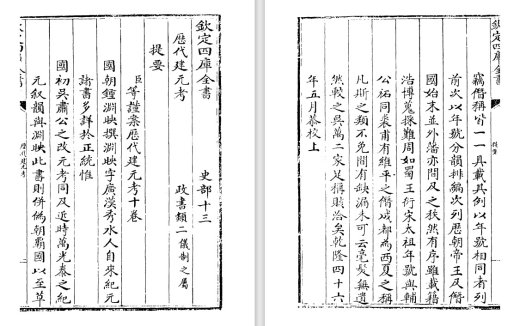 欽定四庫全書
史部十三
歷代建元考
政書類二儀制之屬
提要
臣等謹案歷代建元考十卷
國朝鍾淵映撰淵映字廣漢秀水人自來紀元
諸書多詳於正統惟
國初吳肅公之改元考同及近時萬光泰之紀
元敘韻與淵映此書則併偽朝霸國以至草
歷代建元考
欽定四庫全書
竊僭稱皆一一具載其例以年號相同者列
前次以年號分韻排編次列歷朝帝王及僭
國始末並外藩亦間及之秩然有序雖載籍
浩博蒐採難周如蜀王衍宋太祖年號與輔
公祏同柴甫有維平之僭成都為西夏之稱
凡斯之類不免間有缺漏未可云毫髮無遺
然較之吳萬二家足稱賅洽矣乾隆四十六
年五月恭校上